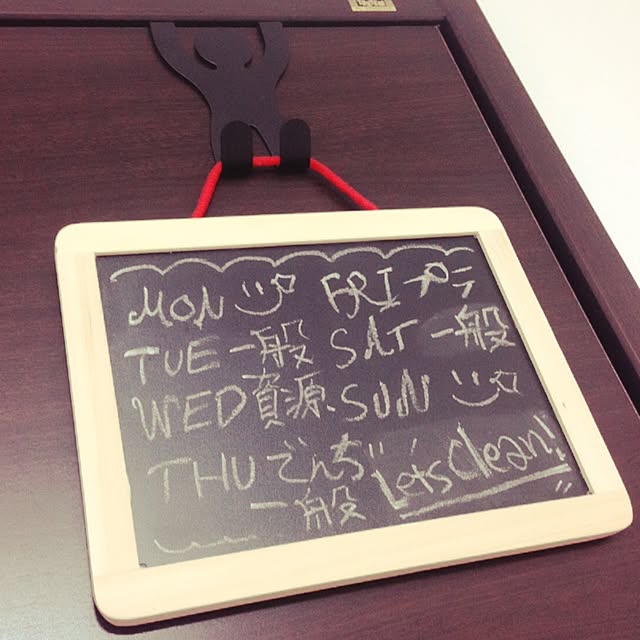 MON FRI プラ
TUE 一般 SAT 一般
WED 資源. SUN
THU でんぢ
一般 Let's Clean!!